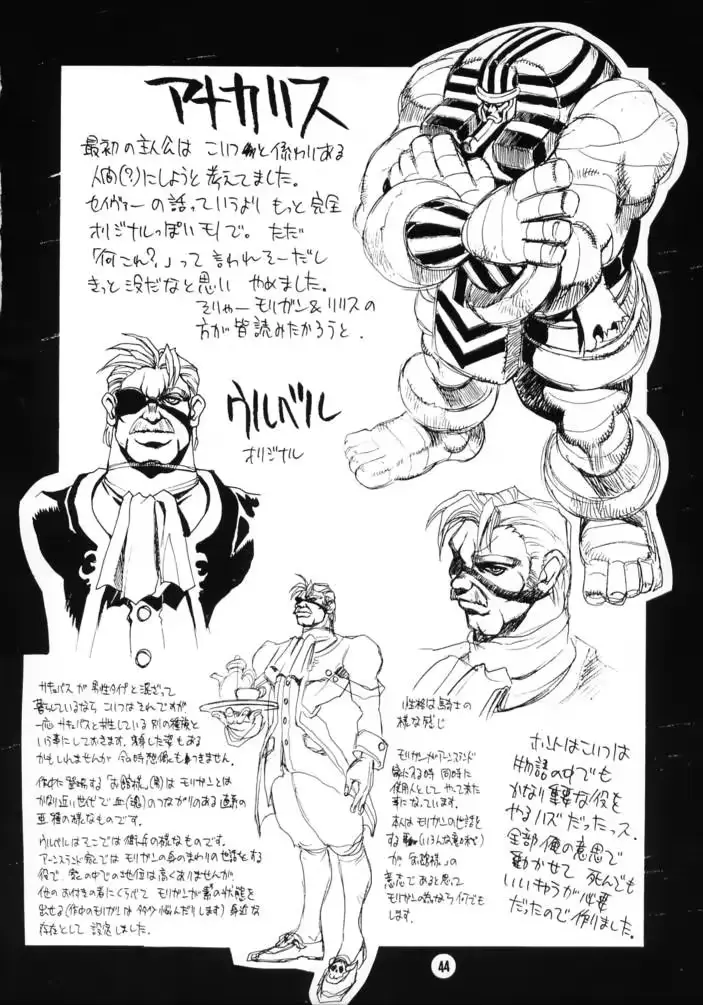 アナカリス
最初の主人公は こいつと係わりある
人間(?)にしようと考えてました。
セイヴァーの話っていうより もっと完全
オリジナルっぽいモノで。ただ
「何これ?」って言われそーだし
きっと没だなと思い やめました。
そりゃー モリガン&リリスの
方が皆読みたかろうと.
ウルベル
オリジナル
サキュバスが男性タイプと混ざって
暮らしているなら こいつはそれですが、
一応サキュバスと共生している別の種族と
いう事にしておきます。
かもしれませんが 今の時
作中に登場する「お館様」(男)はモリガンとは
かなり近い世代で血(魂)のつながりのある直系の
亜種の様なものです。
ウルベルはそこでは傭兵の様なものです。
アーンスランド家では モリガンの身のまわりの世話をする
役で 家の中での地位は高くありませんが、
他のお付きの者にくらべて モリガンが素の状態を
出せる(作中のモリガンは多分悩んだりします)身近な
存在として 設定しました。
性格は騎士の
様な感じ
モリガンがアーンスランド
家に入る時 同時に
使用人として やって来た
事になっています。
本人はモリガンの世話を
する事(いろんな意味で)
が お館様の
意志であると思って
モリガンの為なら何でも
します。
ホントはこいつは
物語の中でも
かなり重要な役を
やるハズだったっス。
全部俺の意思で
動かせて 死んでも
いいキャラが必要
だったので作りました。
44